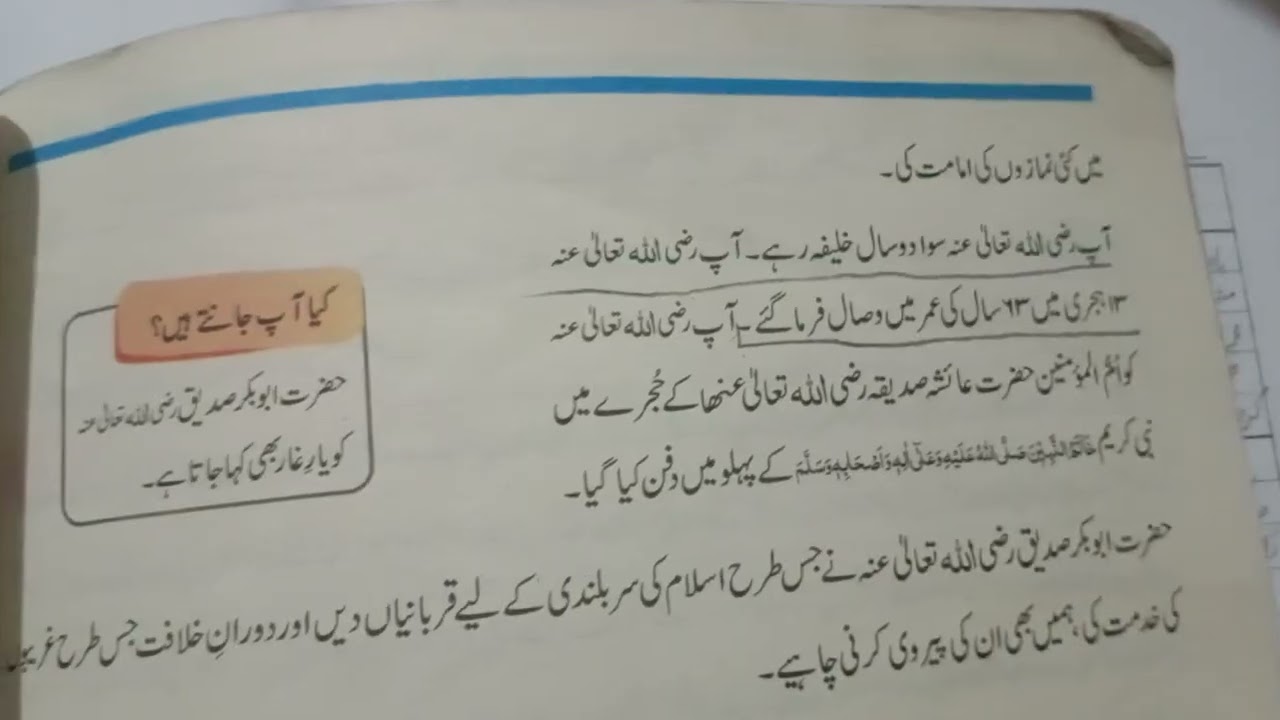 میں کئی نمازوں کی امامت کی۔
آپ رضی اللہ تعالیٰ عنہ سوا دو سال خلیفہ رہے۔ آپ رضی اللہ تعالیٰ عنہ
۱۳ ہجری میں ۶۳ سال کی عمر میں وصال فرما گئے۔ آپ رضی اللہ تعالیٰ عنہ
کو اُمّ المؤمنین حضرت عائشہ صدیقہ رضی اللہ تعالیٰ عنھا کے حُجرے میں
نبی کریم خَاتَمُ النَّبِیّٖنَ صَلَّی اللہُ عَلَیْہِ وَعَلٰٓی اٰلِہٖ وَاَصْحَابِہٖ وَسَلَّمَ کے پہلو میں دفن کیا گیا۔
کیا آپ جانتے ہیں؟
حضرت ابوبکر صدیق رضی اللہ تعالیٰ عنہ
کو یارِ غار بھی کہا جاتا ہے۔
حضرت ابوبکر صدیق رضی اللہ تعالیٰ عنہ نے جس طرح اسلام کی سربلندی کے لیے قربانیاں دیں اور دورانِ خلافت جس طرح
کی خدمت کی، ہمیں بھی ان کی پیروی کرنی چاہیے۔